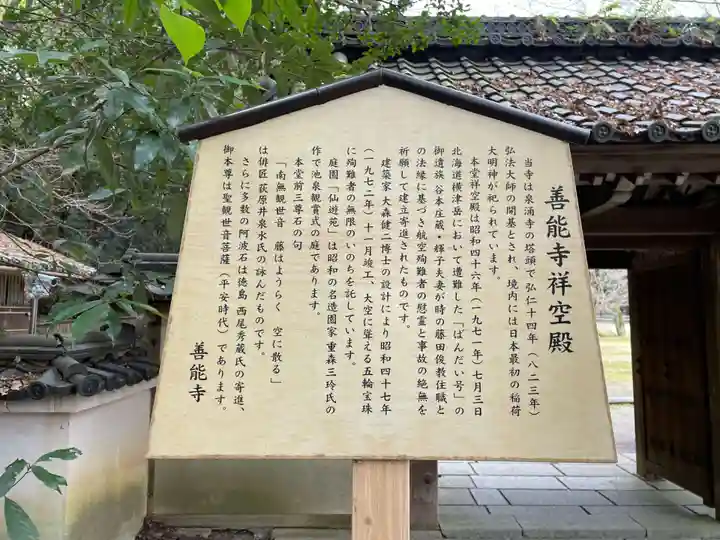 善能寺祥空殿
当寺は泉涌寺の塔頭で弘仁十四年（八二三年）
弘法大師の開基とされ、境内には日本最初の稲荷
大明神が祀られています。
本堂祥空殿は昭和四十六年（一九七一年）七月三日
北海道横津岳において遭難した「ばんだい号」の
御遺族 谷本庄蔵・輝子夫妻が時の藤田俊教住職と
の法縁に基づき航空殉難者の慰霊と事故の絶無を
祈願して建立寄進されたものです。
建築家 大森健二博士の設計により昭和四十七年
（一九七二年）十一月竣工、大空に聳える五輪宝珠
に殉難者の無限のいのちを託しています。
庭園「仙遊苑」は昭和の名造園家 重森三玲氏の
作で池泉観賞式の庭であります。
本堂前三尊石の句
「南無観世音　藤はようらく　空に散る」
は俳匠 荻原井泉水氏の詠んだものです。
さらに多数の阿波石は徳島 西尾秀蔵氏の寄進、
御本尊は聖観世音菩薩（平安時代）であります。
善能寺